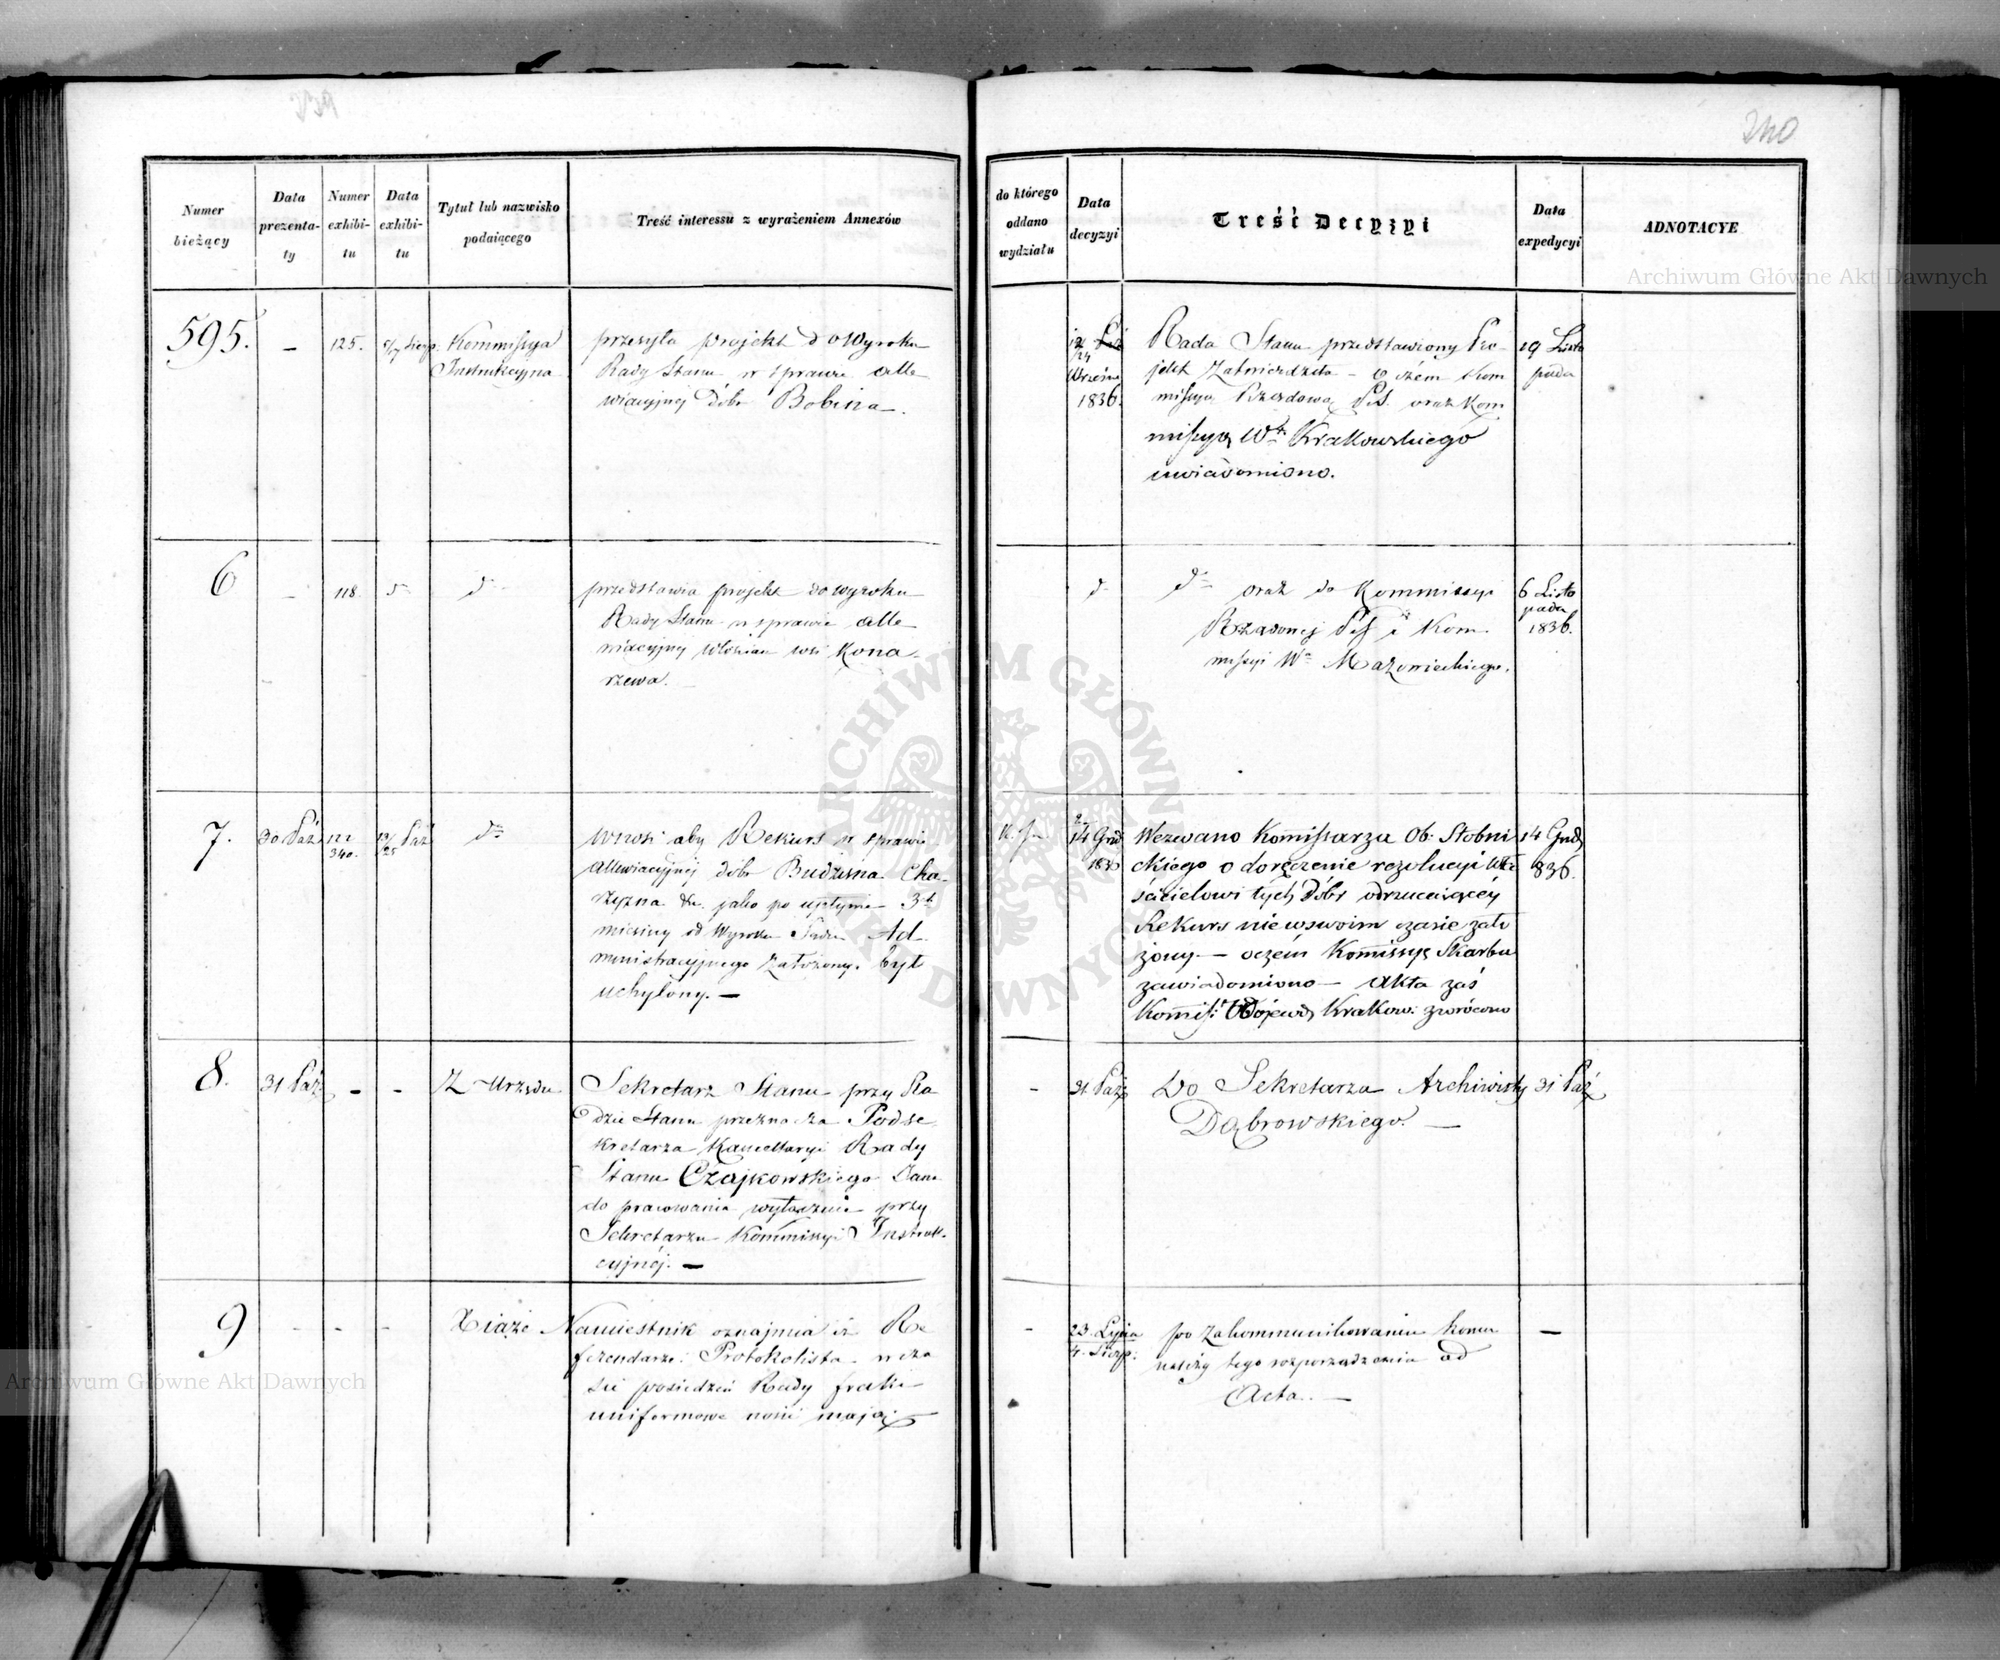 240
Numer
bieżący
Data
prezenta-
ty
Numer
exhibi-
tu
Data
exhibi-
tu
Tytuł lub nazwisko
podaiącego
Treść interessu z wyrażeniem Annexów
do którego
oddano
wydziału
Data
decyzyi
Treść Decyzyi
Data
expedycyi
ADNOTACYE
595.
–
125.
5/17 Sierp:
Kommissya
Instrukcyjna
przesyła projekt do Wyroku
Rady Stanu w sprawie alle
wiacyjnej dóbr Bobina.
12/24
Wrześn
1836.
Rada Stanu przedstawiony Pro-
jekt Zatwierdziła – o czém Kom
missyą Rządową P.S. oraz Kom
missyą Wa Krakowskiego
uwiadomiono.
19 Listo
pada
6
–
118.
d
d
przedstawia projekt do wyroku
Rady Stanu w sprawie alle
wiacyjnej Włościan wsi Kona-
rzewa. –
d
d oraz do Kommissyi
Rządowej i Kom-
missyi Wa Mazowieckiego.
6 Listo
pada
1836.
7.
30 Paź
122
340.
13/25 Paź
do
wnosi aby Rekurs w sprawie
allewiacyjnéj dóbr Budzisna Cha-
jako po upłynie 3ch
miesięcy od Wyroku Sądu Ad-
ministracyjnego założony, był
uchylony. –
2/14 Grud
1836
Wezwano Komissarza Ob: Stobni
ckiego o doręczenie rezolucyi Wła
ścicielowi tych dóbr odrzucającéy
Rekurs niewswoim czasie zało
żony – oczem Komissyę Skarbu
zawiadomiono – Akta zaś
Komiss: Wojewó Krakow: zwrócono
14 Grud
836.
8.
31 Paź
–
–
Z Urzędu
Sekretarz Stanu przy Ra
dzie Stanu przeznacza Podse
kretarza Kancellaryi Rady
Stanu Czajkowskiego Jana
do pracowania wyłącznie przy
Sekretarzu Kommissyi Instruk-
cyjnéj. –
–
31 Paź
Do Sekretarza Archiwisty
Dąbrowskiego. –
31 Paź
9
–
–
–
Xiąże Namiestnik oznajmia iż Re
ferendarze i Protokolista w cza
sie posiedzeń Rady fraki
uniformowe nosić mają.
–
23. Lipca
4. Sierp:
po zakommunikowaniu komu
należy tego rozporządzenia ad
Acta. –
–
Archiwum Główne Akt Dawnych
ARCHIWUM GŁÓWNE AKT DAWNYCH
Archiwum Główne Akt Dawnych